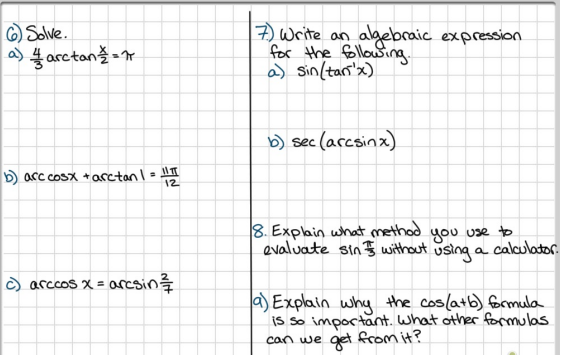 6) Solve.
a) 4/3 arctan x/2 = π
b) arccosx + arctan1 = 11π/12
c) arccos x = arcsin 2/7
7) Write an algebraic expression
for the following.
a) sin(tan⁻¹x)
b) sec(arcsinx)
8. Explain what method you use to
evaluate sin π/3 without using a calculator.
9) Explain why the cos(a+b) formula
is so important. What other formulas
can we get from it?